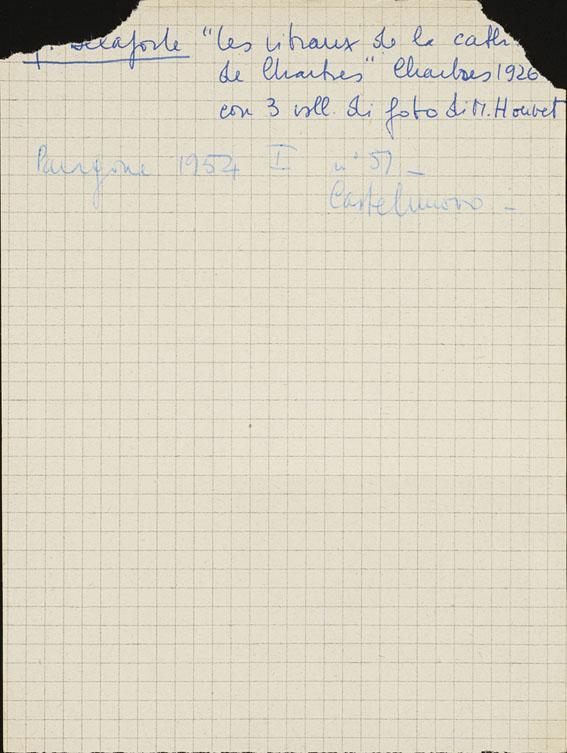 Y. Delaporte "Les vitraux de la cath
de Chartres" Chartres 1926
con 3 voll. di foto di M. Houvet
Paragone 1954 I n° 51 –
Castelnuovo –